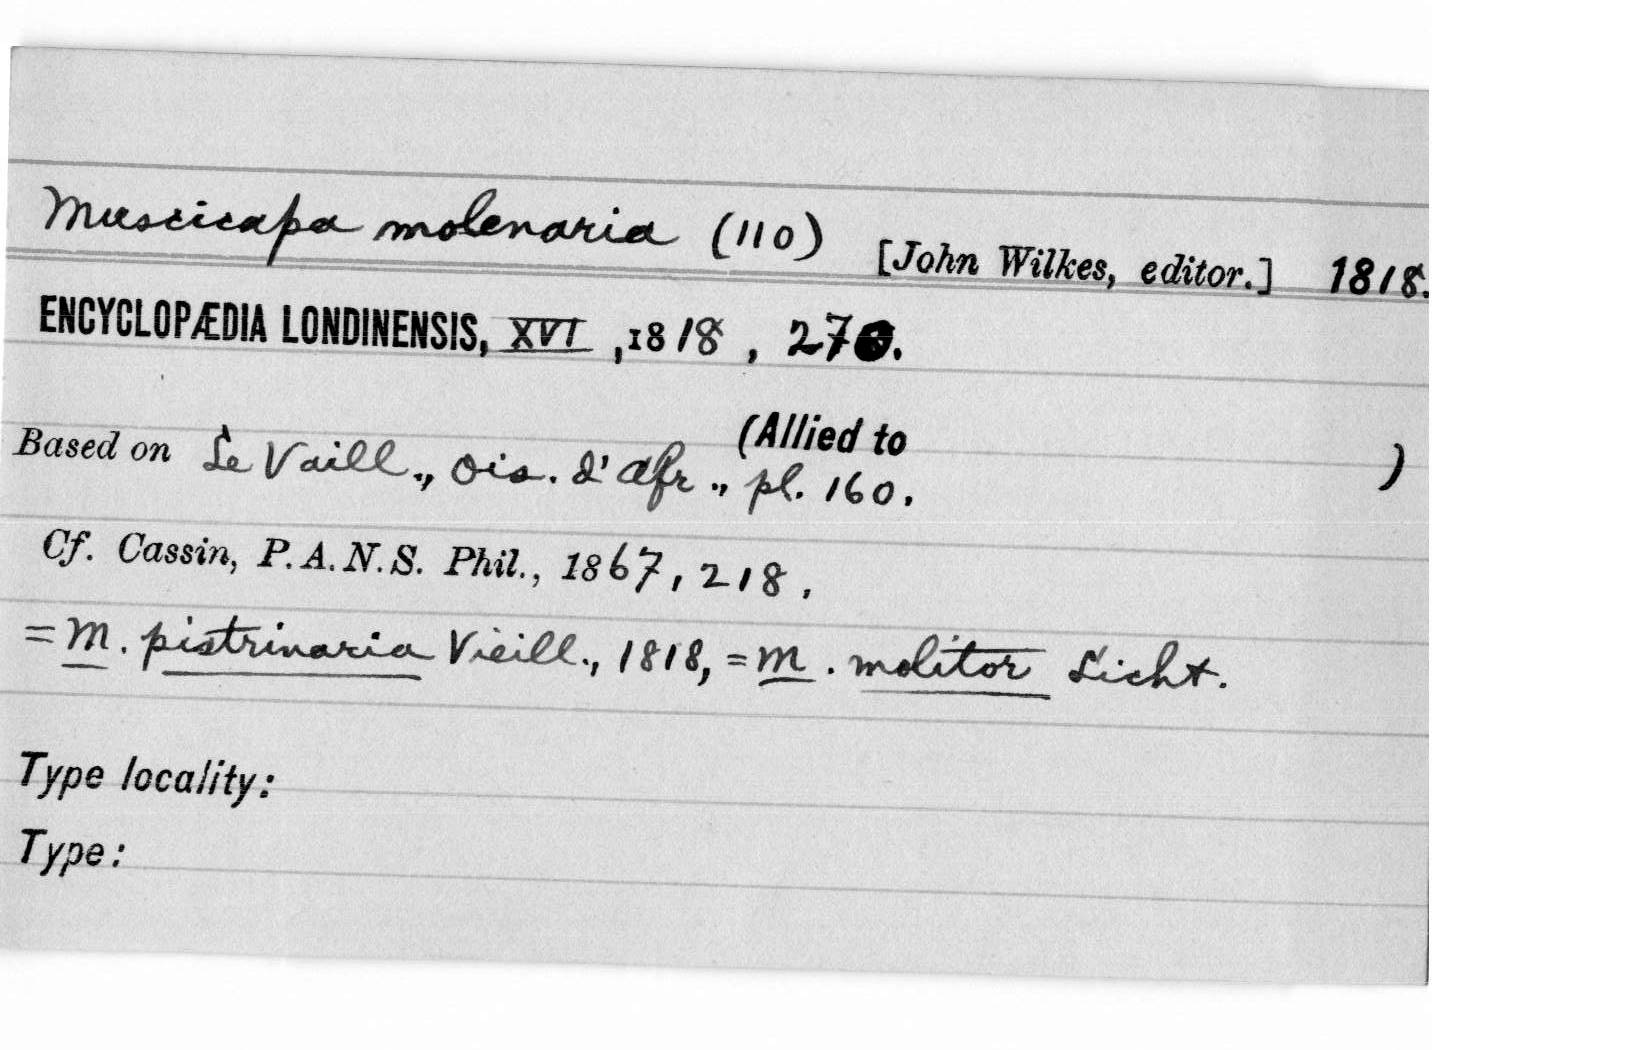 Muscicapa molenaria (110) [John Wilkes, editor.] 1818.
ENCYCLOPÆDIA LONDINENSIS, XVI, 1818, 270.
(Allied to )
Based on Le Vaill., Ois. d'Afr., pl. 160.
Cf. Cassin, P.A.N.S. Phil., 1867, 218.
= M. pistrinaria Vieill., 1818, = M. molitor Licht.
Type locality:
Type: